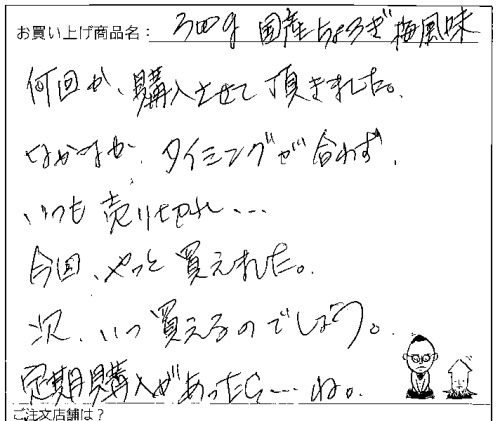 お買い上げ商品名： 300g 国産ちょろぎ梅風味
何回か、購入させて頂きました。
なかなか、タイミングが合わず、
いつも売り切れ…
今回、やっと買えました。
次、いつ買えるのでしょう。
定期購入があったら…ね。
ご注文店舗は？